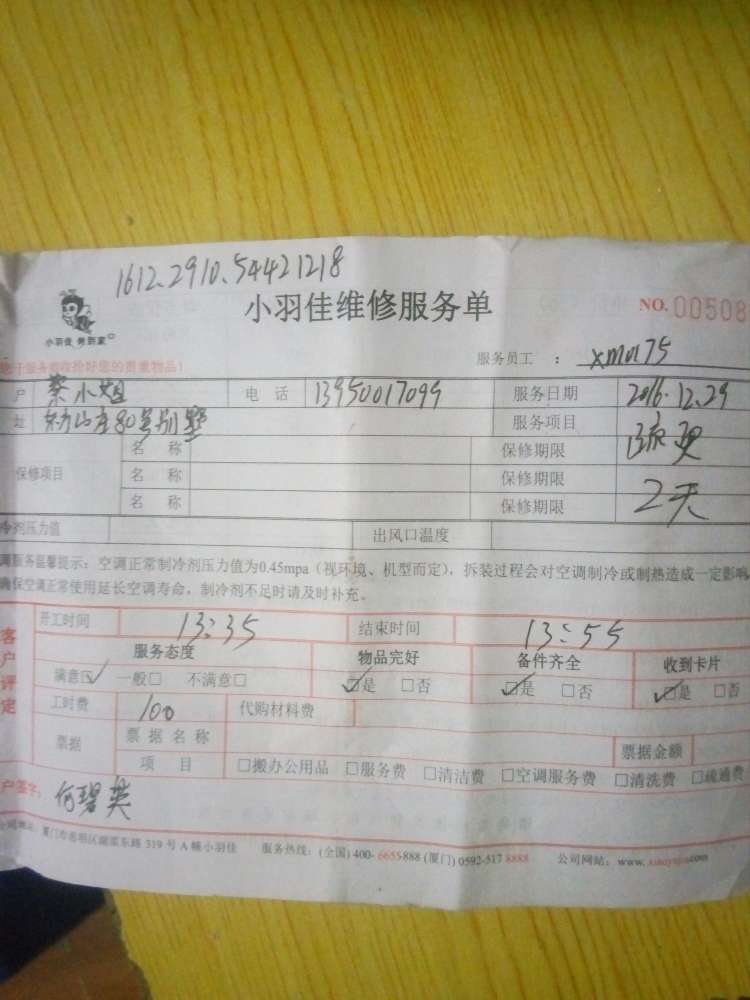 1612.2910.54421218
小羽佳维修服务单
NO. 00508
小羽佳 务到家
服务员工 : xm0175
户 蔡小姐 电话 13950017099 服务日期 2016.12.29
址 80号别墅 服务项目
保修项目 名称 保修期限
名称 保修期限
名称 保修期限 2天
冷剂压力值 出风口温度
调服务温馨提示：空调正常制冷剂压力值为0.45mpa（视环境、机型而定），拆装过程会对空调制冷或制热造成一定影响
确保空调正常使用延长空调寿命，制冷剂不足时请及时补充。
客户评定
开工时间 13:35 结束时间 13:55
服务态度 物品完好 备件齐全 收到卡片
满意☑ 一般□ 不满意□ ☑是 □否 ☑是 □否 ☑是 □否
工时费 100 代购材料费
票据 票据名称 票据金额
项目 □搬办公用品 □服务费 □清洁费 □空调服务费 □清洗费 □疏通费
户签字： 何碧英
公司地址：厦门市思明区湖滨东路 319 号 A 幢小羽佳 服务热线：(全国) 400-6655888 (厦门) 0592-5178888 公司网站：www.xiaoyujia.com